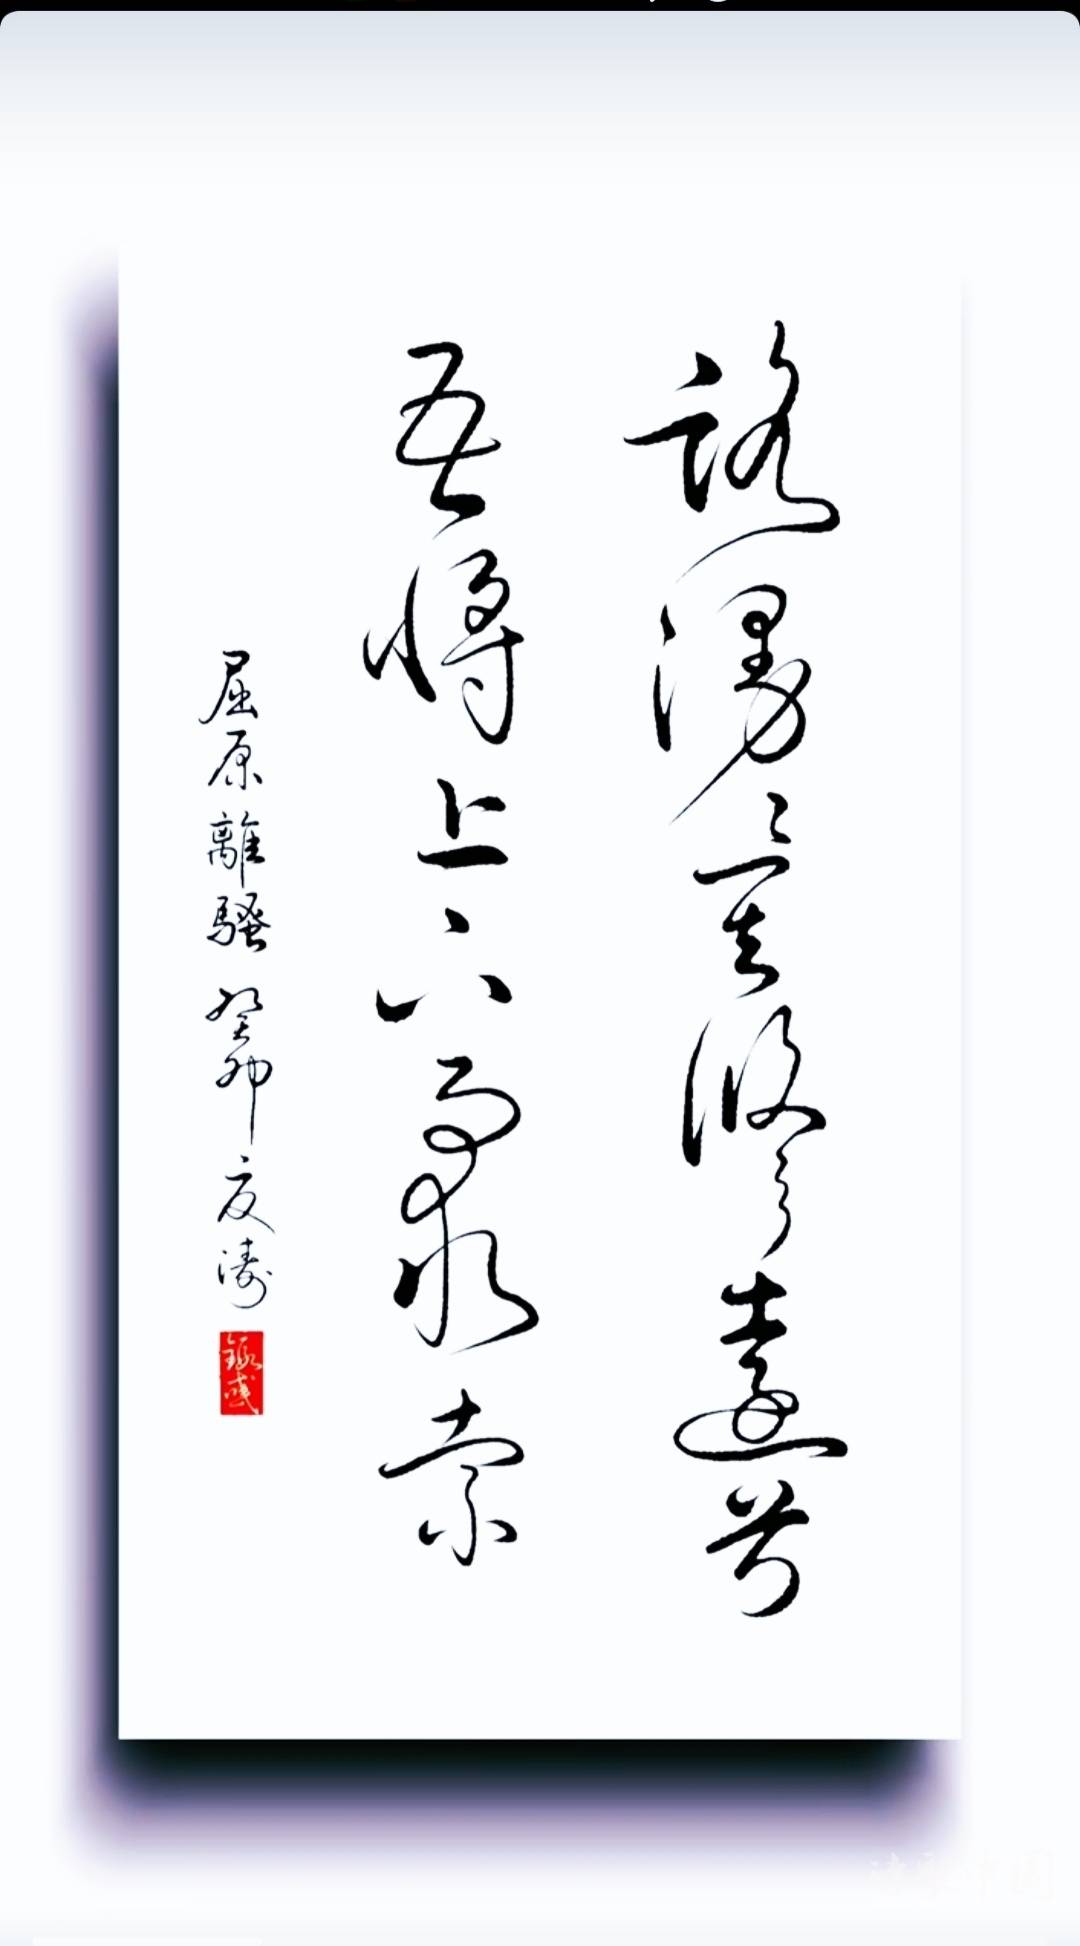 路漫漫其修远兮
吾将上下而求索
屈原離騷 癸卯 友濤